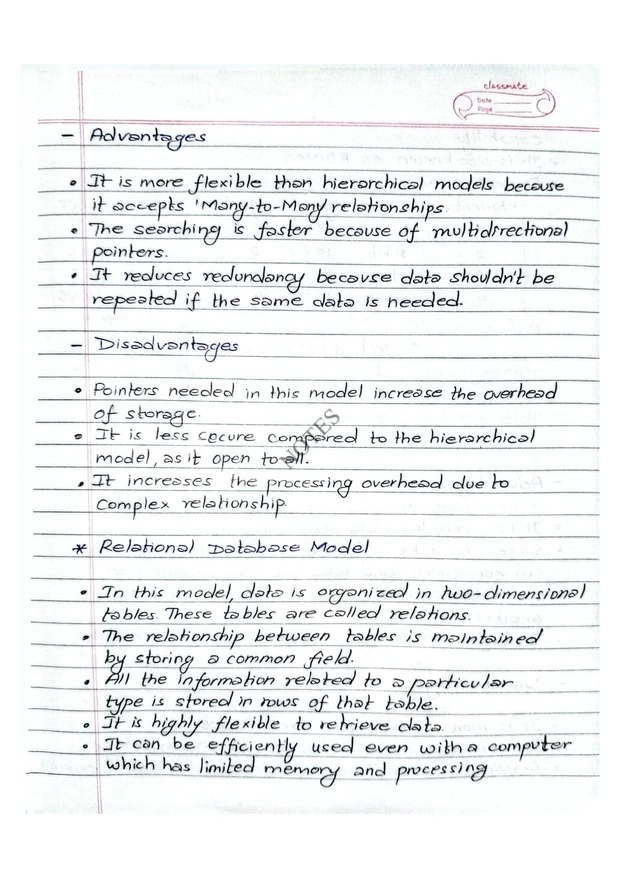 classmate
Date
Page
- Advantages
• It is more flexible than hierarchical models because
it accepts 'Many-to-Many relationships.
• The searching is faster because of multidirectional
pointers.
• It reduces redundancy because data shouldn't be
repeated if the same data is needed.
- Disadvantages
• Pointers needed in this model increase the overhead
of storage.
• It is less secure compared to the hierarchical
model, as it open to all.
NOTES
• It increases the processing overhead due to
complex relationship.
* Relational Database Model
• In this model, data is organized in two-dimensional
tables. These tables are called relations.
• The relationship between tables is maintained
by storing a common field.
• All the information related to a particular
type is stored in rows of that table.
• It is highly flexible to retrieve data.
• It can be efficiently used even with a computer
which has limited memory and processing